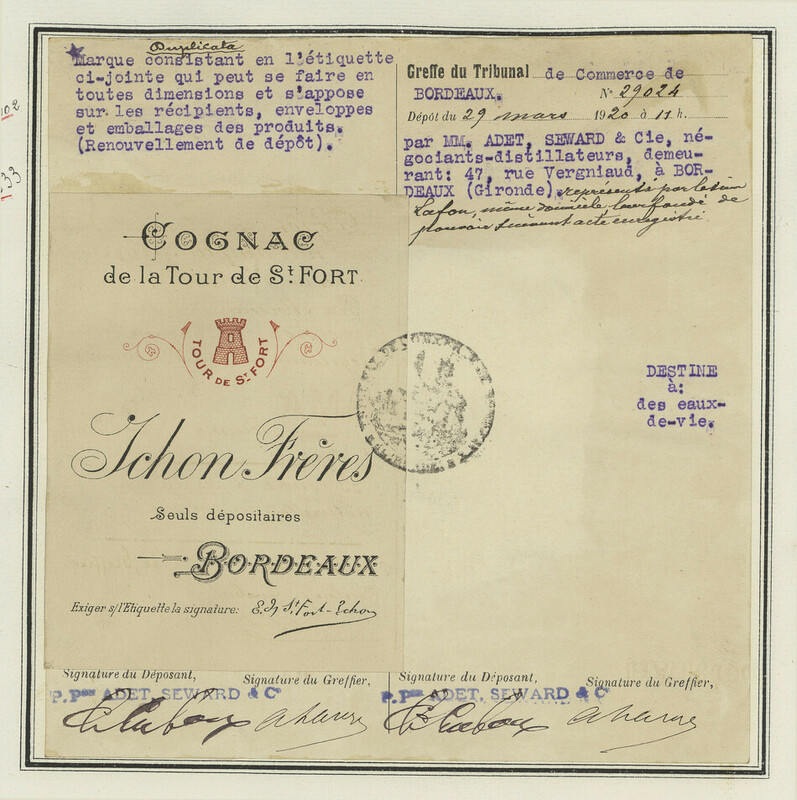 Duplicata
Marque consistant en l'étiquette
ci-jointe qui peut se faire en
toutes dimensions et s'appose
sur les récipients, enveloppes
et emballages des produits.
(Renouvellement de dépôt).
Greffe du Tribunal de Commerce de
BORDEAUX. N° 29024
Dépôt du 29 mars 1920 à 11 h.
par MM. ADET, SEWARD & Cie, né-
gociants-distillateurs, demeu-
rant: 47, rue Vergniaud, à BOR-
DEAUX (Gironde), représentés par le sieur
Lafon, même domicile, leur fondé de
pouvoir suivant acte enregistré
COGNAC
de la Tour de St. FORT
TOUR DE St FORT
Ichon Frères
Seuls dépositaires
BORDEAUX
Exiger s/l'Etiquette la signature: St Fort-Ichon
DESTINE
à:
des eaux-
de-vie.
Signature du Déposant, Signature du Greffier,
P. pon ADET, SEWARD & Co
Signature du Déposant, Signature du Greffier,
P. pon ADET, SEWARD & Co
102
33